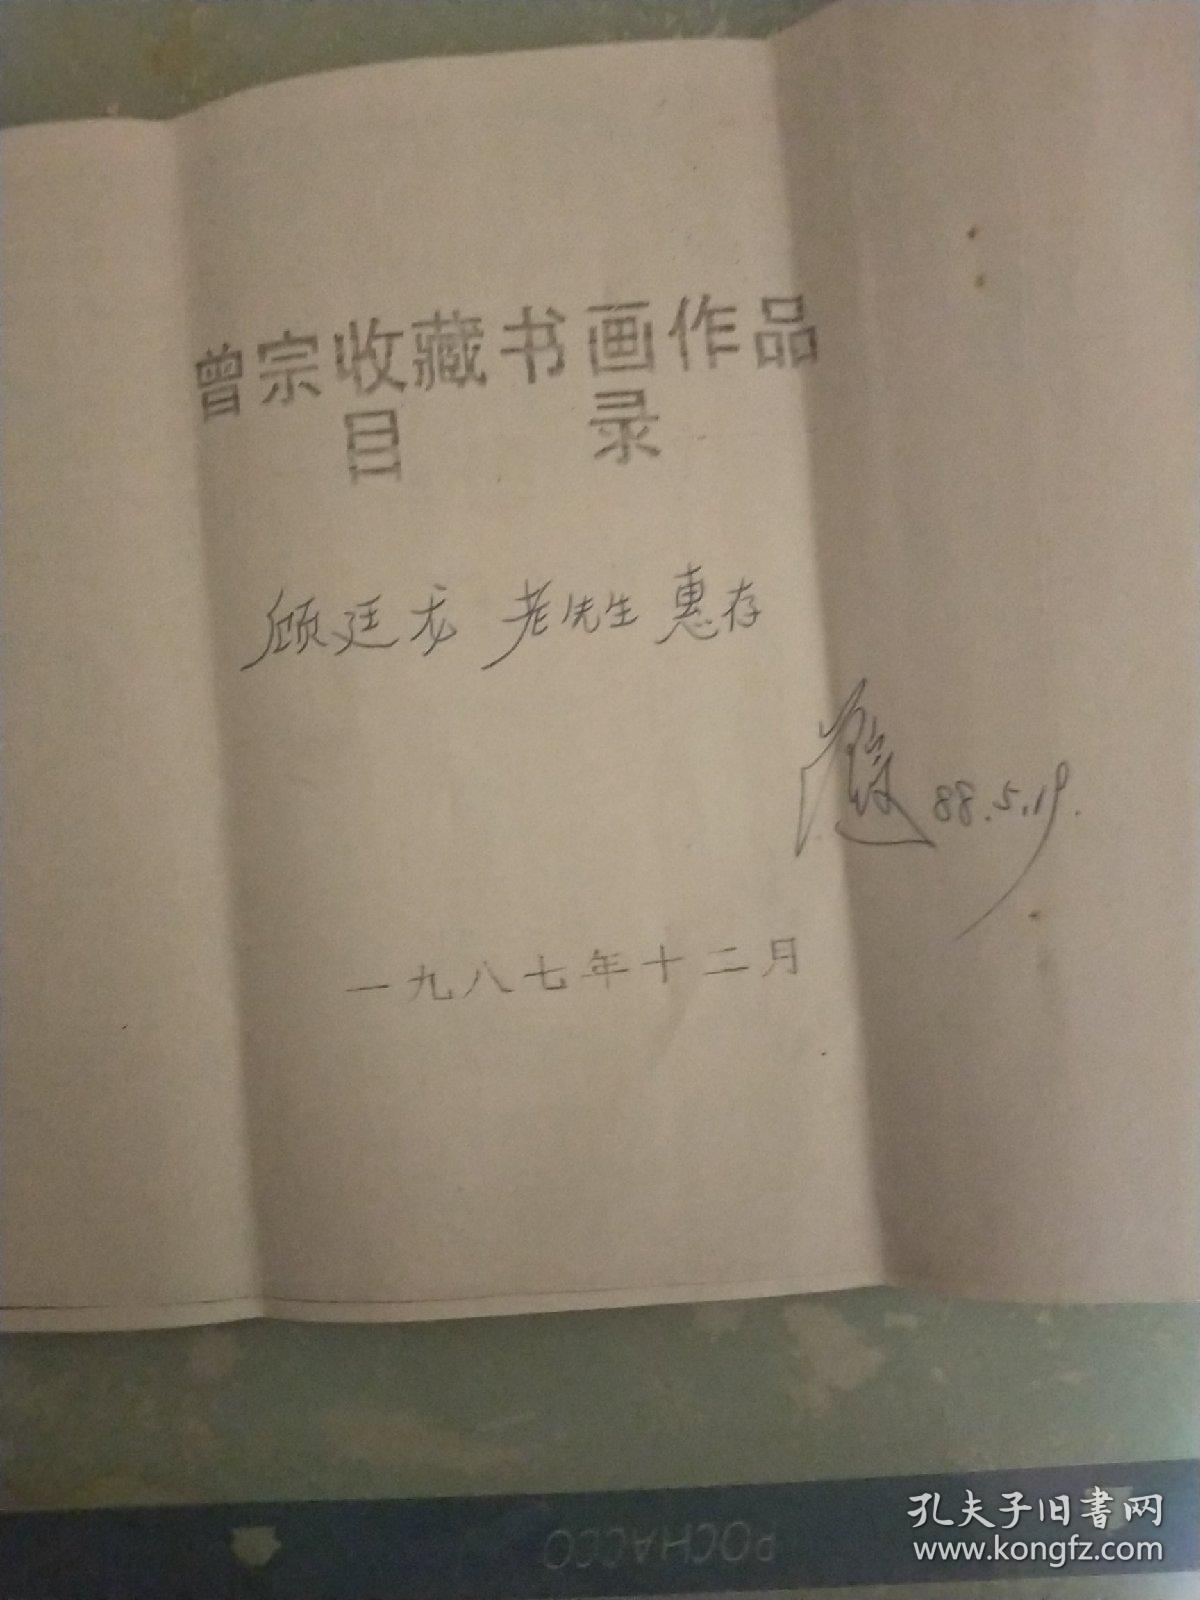 曾宗收藏书画作品
目录
顾廷龙 老先生 惠存
88.5.19.
一九八七年十二月
POCHACCO
孔夫子旧书网
www.kongfz.com